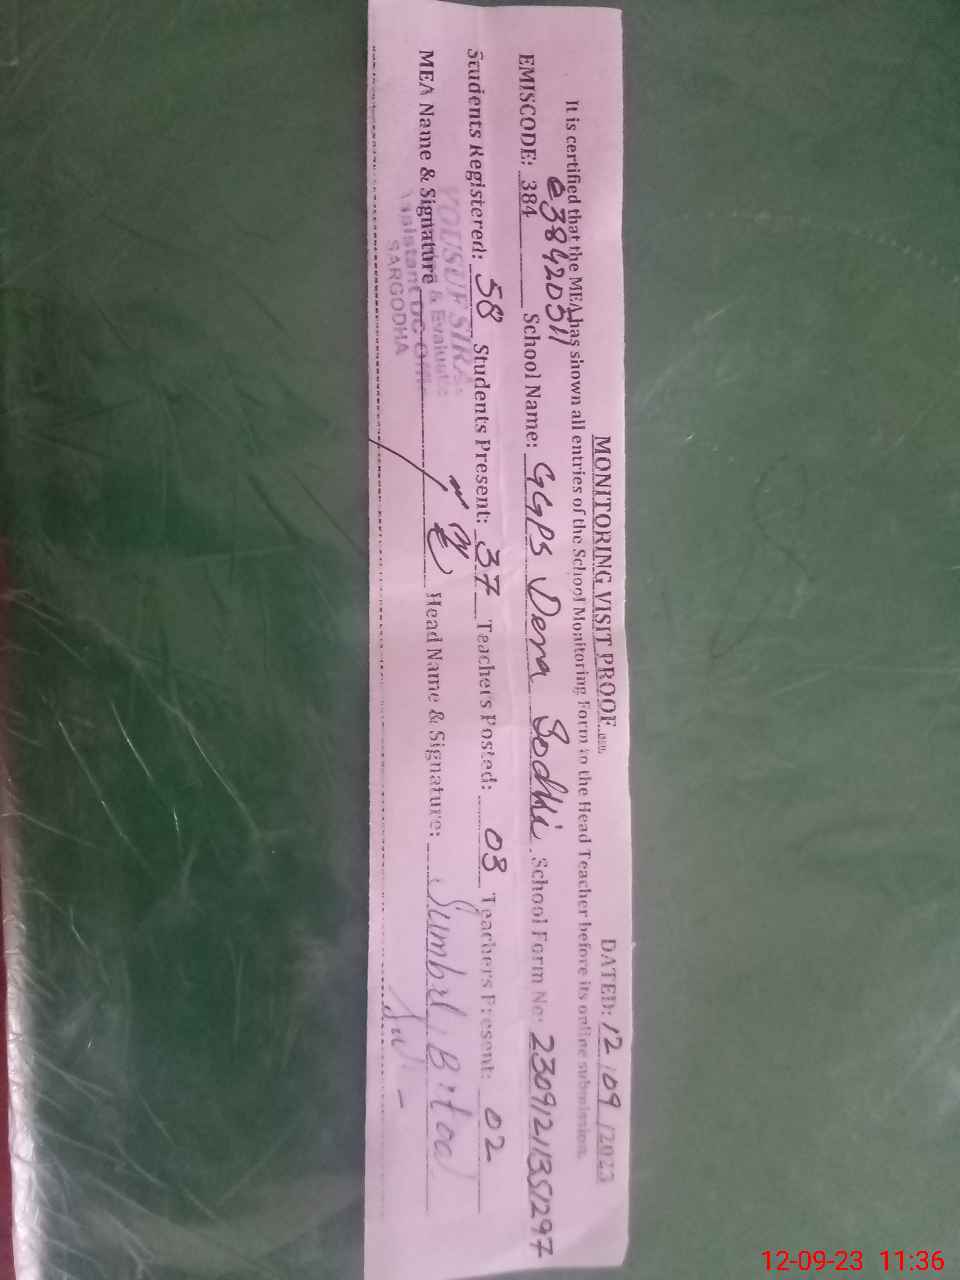 MONITORING VISIT PROOF
DATED: 12/09/2023
It is certified that the MEA has shown all entries of the School Monitoring Form to the Head Teacher before its online submission.
EMISCODE: 384 38420311 School Name: GGPS Dera Sodhi School Form No: 23091211351297
Students Registered: 58 Students Present: 37 Teachers Posted: 03 Teachers Present: 02
MEA Name & Signature Head Name & Signature: Sumbel
YOUSUF
& Evaluati
Assistant
SARGODHA
12-09-23 11:36